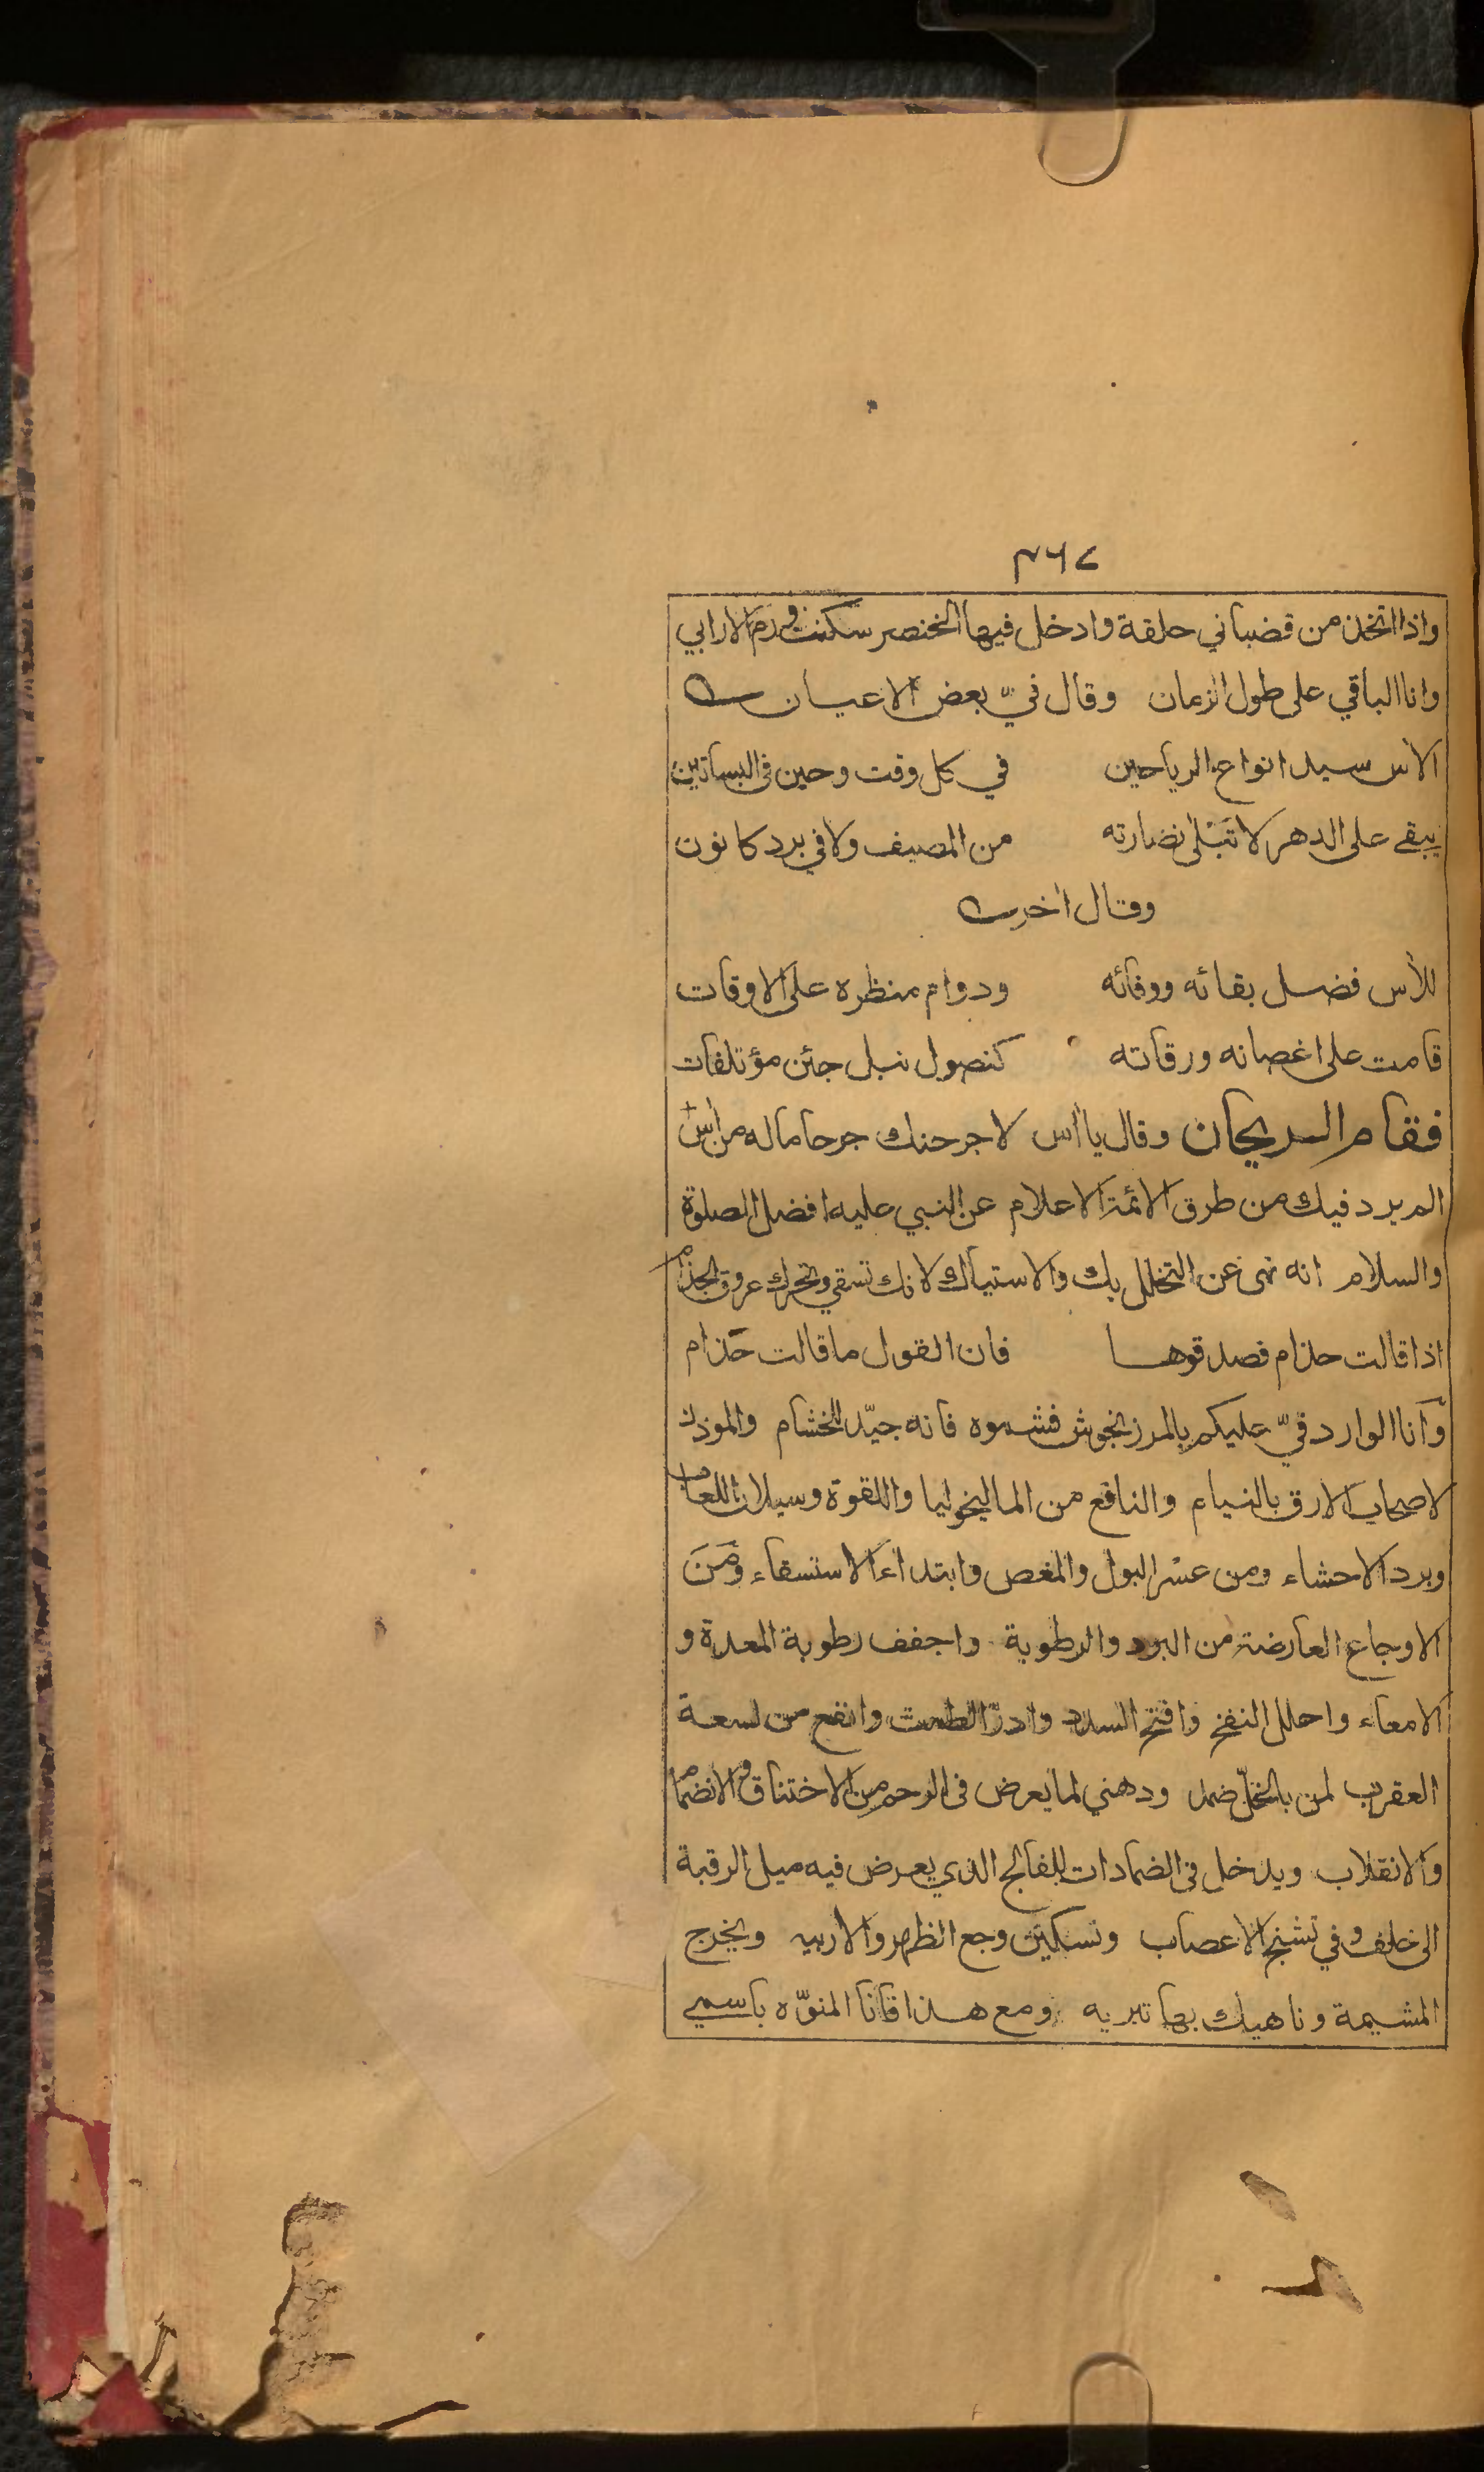 ٣٦٧
واذا اتخذ من قضباني حلقة وادخل فيها الخنصر سكنت ورم الارابي
وانا الباقي على طول الزمان وقال فيّ بعض الاعيان
الآس سيد انواع الرياحين في كل وقت وحين فى البساتين
يبقى على الدهر لا تَبْلى نضارته من المصيف ولا في برد كانون
وقال اخر
للآس فضل بقائه ووفائه ودوام منظره على الاوقات
قامت على اغصانه ورقاته كنصول نبل جئن مؤتلفات
فقام الريحان وقال يا آس لاجرحنك جرحا ماله من آس
الم يرد فيك من طرق الائمة الاعلام عن النبي عليه افضل الصلوة
والسلام انه نهى عن التخلل بك والاستياك لانك تسقي وتحرك عروق الجذام
اذا قالت حذام فصدقوها فان القول ما قالت حَذام
وَانا الوارد فيّ عليكم بالمرزنجوش فشموه فانه جيّد للخشام والموذن
لاصحاب الارق بالنيام والنافع من الماليخوليا واللقوة وسيلان اللعاب
وبرد الاحشاء ومن عسْر البول والمغص وابتداء الاستسقاء ومَنَ
الاوجاع العارضة من البرد والرطوبة واجفف رطوبة المعدة و
الامعاء واحلل النفخ وافتح السدد وادرّ الطمث وانفع من لسعة
العقرب لمن بالخلّ ضمد ودهني لما يعرض فى الرحم من الاختناق والانضمام
والانقلاب ويدخل فى الضمادات للفالج الذي يعرض فيه ميل الرقبة
الى خلف وفي تشنج الاعصاب وتسكين وجع الظهر والاربيه ويخرج
المشيمة وناهيك بها تبريه ومع هذا فانا المنوّه باسمي